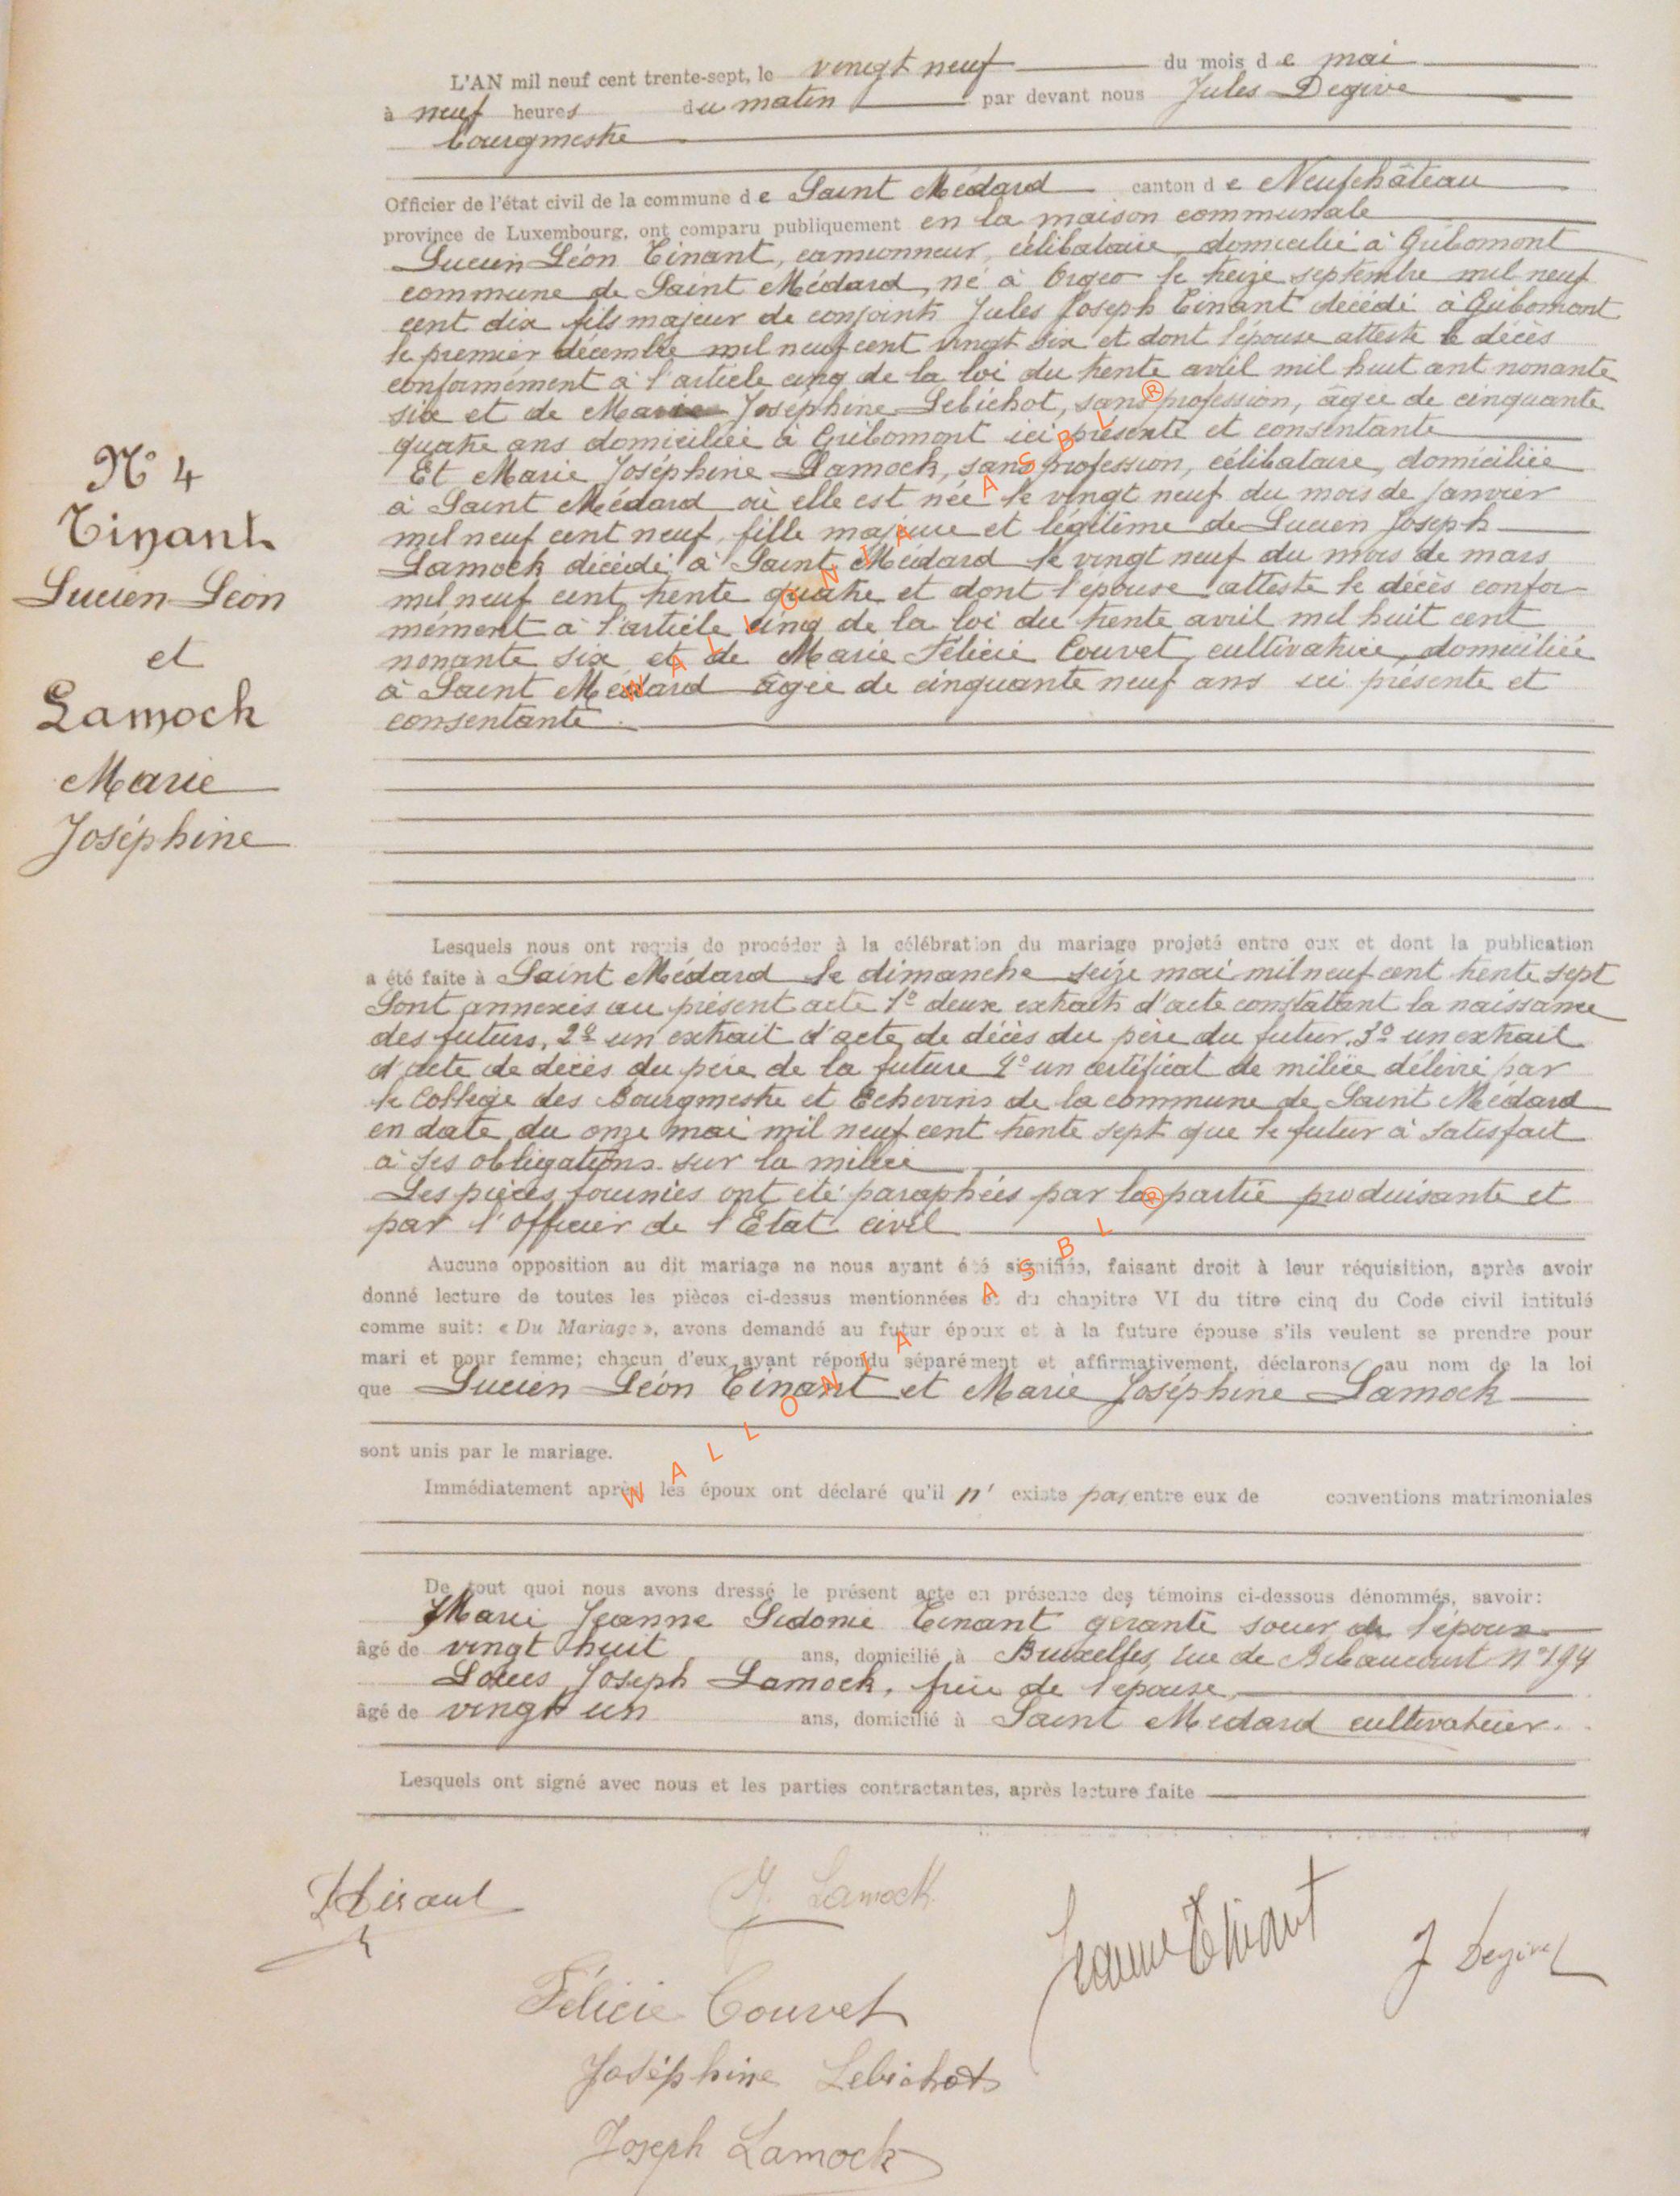 L'AN mil neuf cent trente-sept, le vingt neuf du mois de mai
à neuf heures du matin par devant nous Jules Degive
bourgmestre
Officier de l'état civil de la commune de Saint Médard canton de Neufchâteau
province de Luxembourg, ont comparu publiquement en la maison communale
Lucien Léon Tinant, camionneur, célibataire, domicilié à Gribomont
commune de Saint Médard, né à Orgeo le treize septembre mil neuf
cent dix fils majeur de conjoints Jules Joseph Tinant décédé à Gribomont
le premier décembre mil neuf cent vingt six et dont l'épouse atteste le décès
conformément à l'article cinq de la loi du trente avril mil huit cent nonante
six et de Marie Joséphine Lebichot, sans profession, âgée de cinquante
quatre ans domiciliée à Gribomont ici présente et consentante
Et Marie Joséphine Lamock, sans profession, célibataire, domiciliée
à Saint Médard où elle est née le vingt neuf du mois de janvier
mil neuf cent neuf, fille majeure et légitime de Lucien Joseph
Lamock décédé à Saint Médard le vingt neuf du mois de mars
mil neuf cent trente quatre et dont l'épouse atteste le décès confor
mément à l'article cinq de la loi du trente avril mil huit cent
nonante six et de Marie Félicie Couvet, cultivatrice, domiciliée
à Saint Médard âgée de cinquante neuf ans ici présente et
consentante.
N° 4
Tinant
Lucien Léon
et
Lamock
Marie
Joséphine
Lesquels nous ont requis de procéder à la célébration du mariage projeté entre eux et dont la publication
a été faite à Saint Médard le dimanche seize mai mil neuf cent trente sept
Sont annexés au présent acte 1° deux extraits d'acte constatant la naissance
des futurs, 2° un extrait d'acte de décès du père du futur, 3° un extrait
d'acte de décès du père de la future 4° un certificat de milice délivré par
le Collège des Bourgmestre et Echevins de la commune de Saint Médard
en date du onze mai mil neuf cent trente sept que le futur à satisfait
à ses obligations sur la milice
Les pièces fournies ont été paraphées par la partie produisante et
par l'officier de l'Etat civil
Aucune opposition au dit mariage ne nous ayant été signifiée, faisant droit à leur réquisition, après avoir
donné lecture de toutes les pièces ci-dessus mentionnées et du chapitre VI du titre cinq du Code civil intitulé
comme suit: « Du Mariage », avons demandé au futur époux et à la future épouse s'ils veulent se prendre pour
mari et pour femme; chacun d'eux ayant répondu séparément et affirmativement, déclarons au nom de la loi
que Lucien Léon Tinant et Marie Joséphine Lamock
sont unis par le mariage.
Immédiatement après les époux ont déclaré qu'il n' existe pas entre eux de conventions matrimoniales
De tout quoi nous avons dressé le présent acte en présence des témoins ci-dessous dénommés, savoir:
Marie Jeanne Sidonie Tinant gérante soeur de l'époux
âgé de vingt huit ans, domicilié à Bruxelles, rue de n° 194
Louis Joseph Lamock, frère de l'épouse,
âgé de vingt un ans, domicilié à Saint Médard cultivateur.
Lesquels ont signé avec nous et les parties contractantes, après lecture faite
J. Lamock
Jeanne Tinant
J Degive
Félicie Couvet
Joséphine Lebichot
Joseph Lamock
WALLONIA ASBL ®
WALLONIA ASBL ®